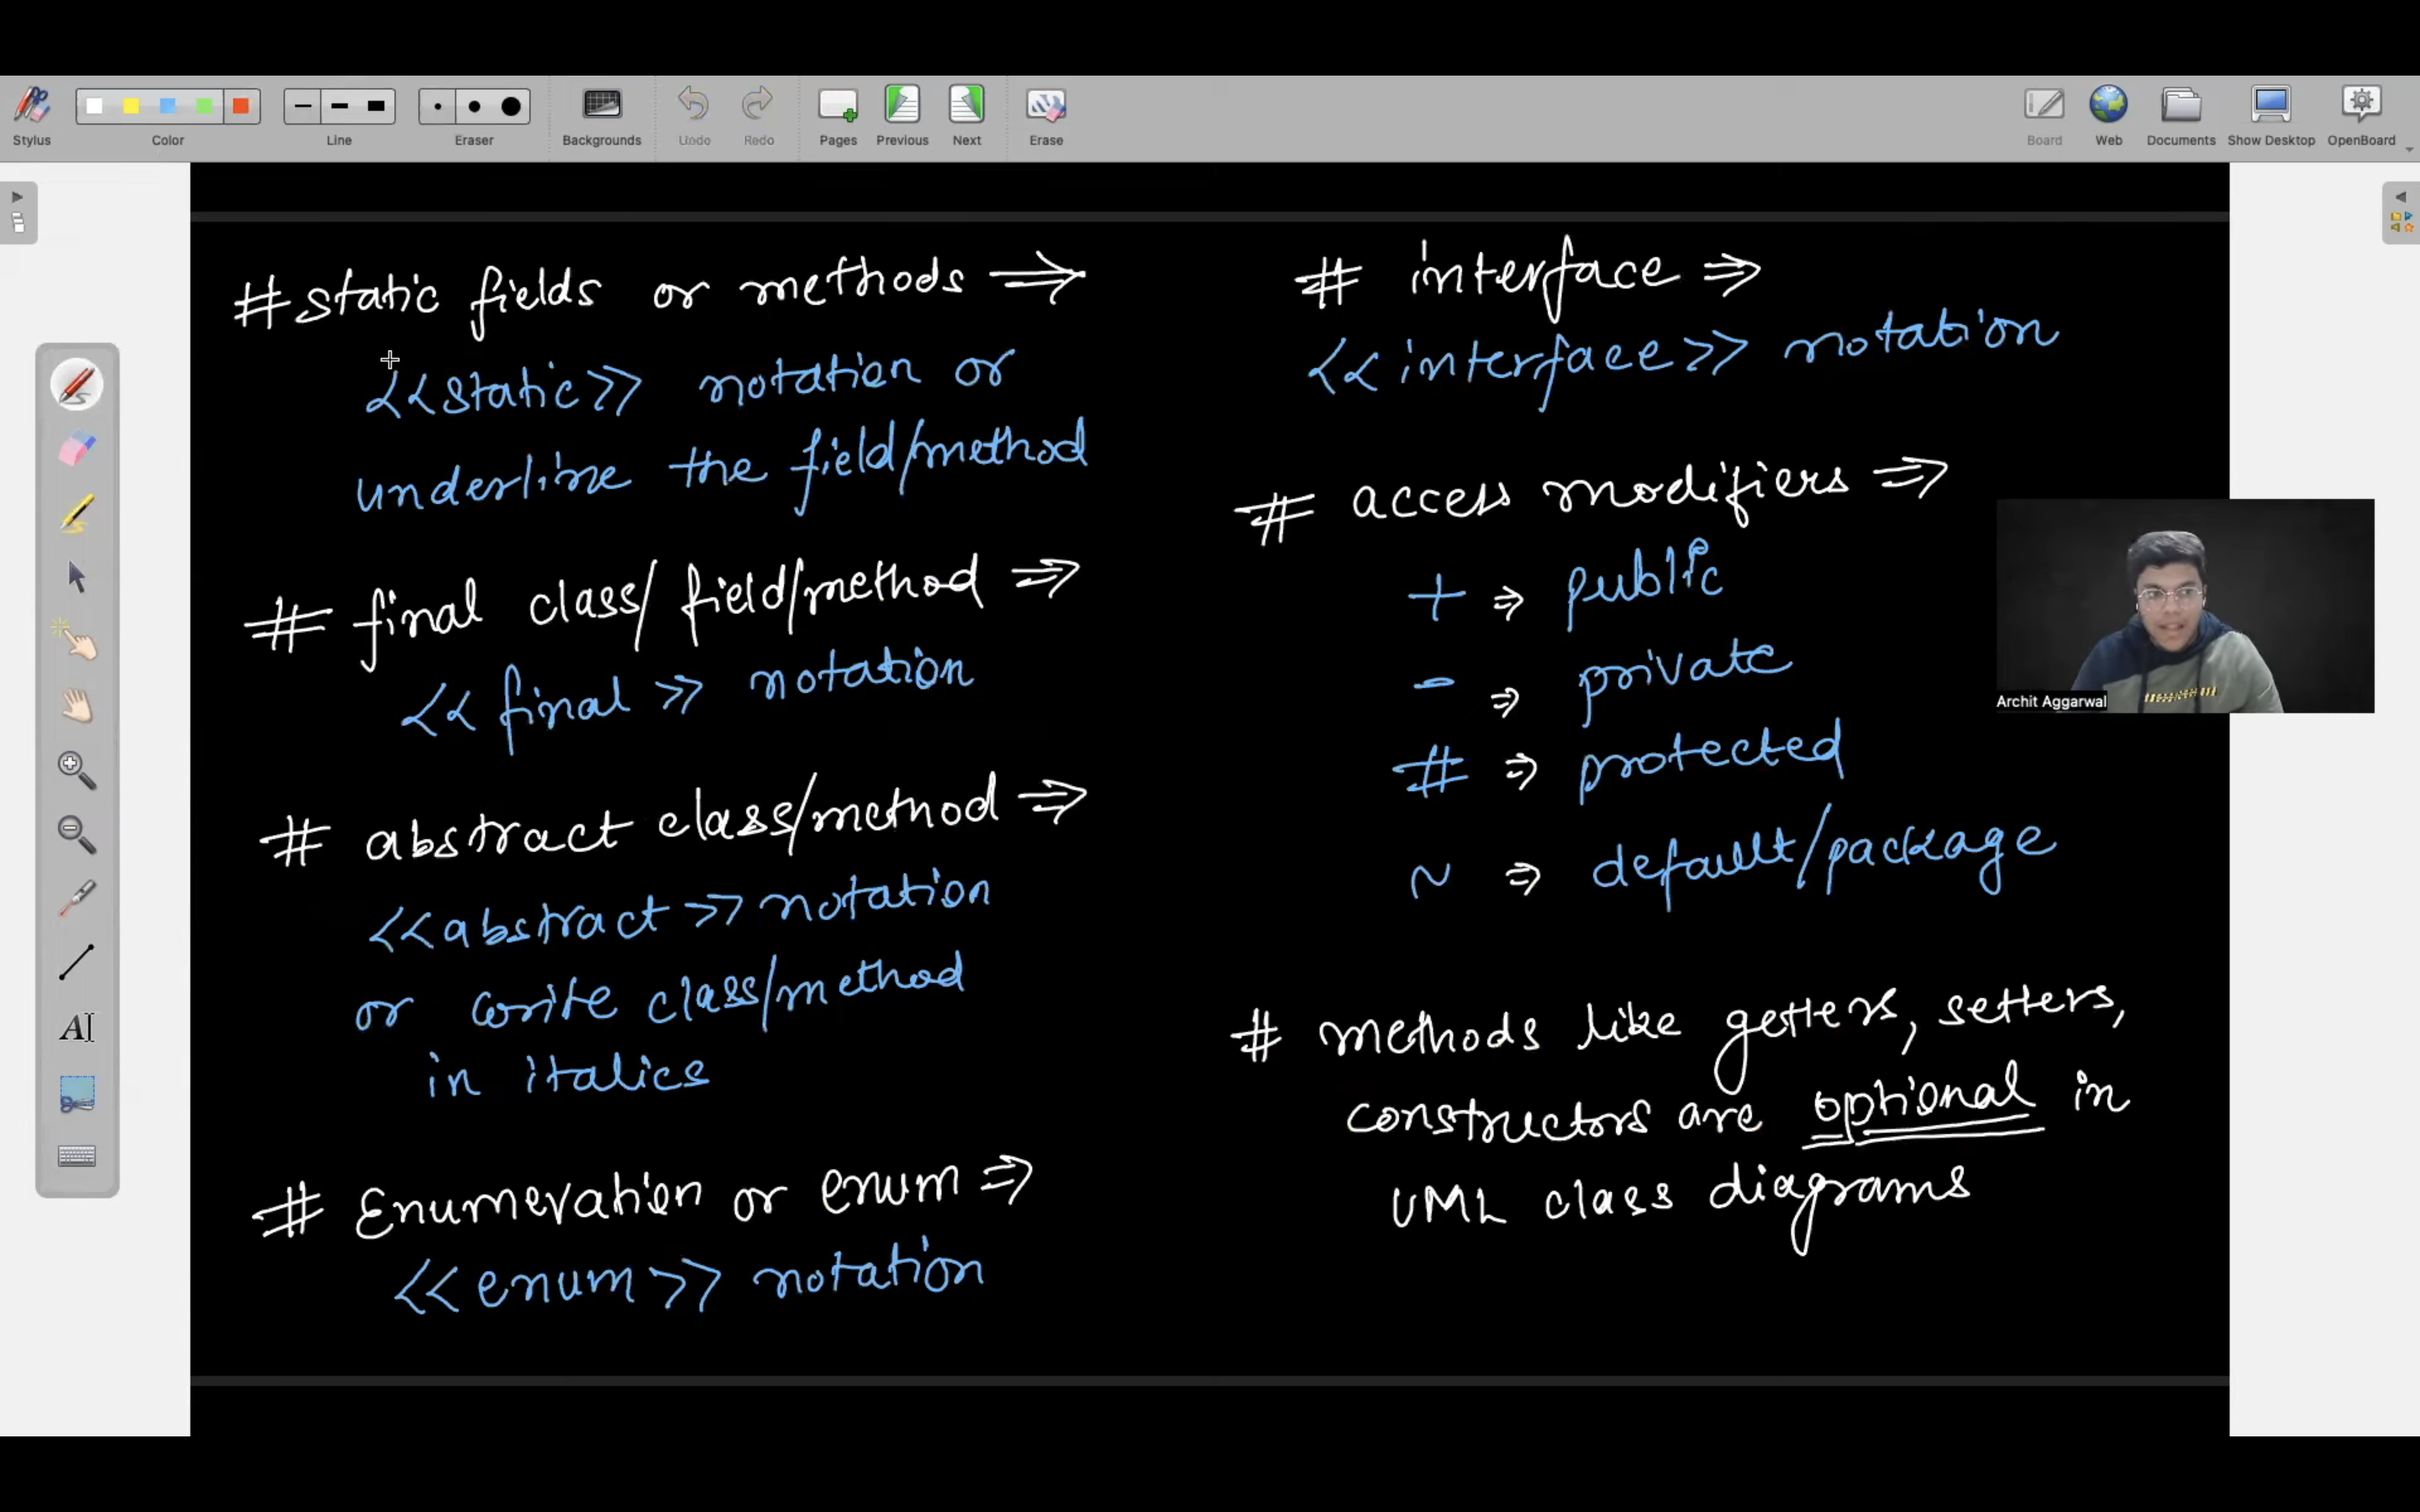 Stylus
Color
Line
Eraser
Backgrounds
Undo
Redo
Pages
Previous
Next
Erase
Board
Web
Documents
Show Desktop
OpenBoard
# static fields or methods ⇒
<<static>> notation or
underline the field/method
# final class/field/method ⇒
<<final>> notation
# abstract class/method ⇒
<<abstract>> notation
or write class/method
in italics
# Enumeration or enum ⇒
<<enum>> notation
# interface ⇒
<<interface>> notation
# access modifiers ⇒
+ ⇒ public
- ⇒ private
# ⇒ protected
~ ⇒ default/package
# methods like getters, setters,
constructors are optional in
UML class diagrams
Archit Aggarwal
AI